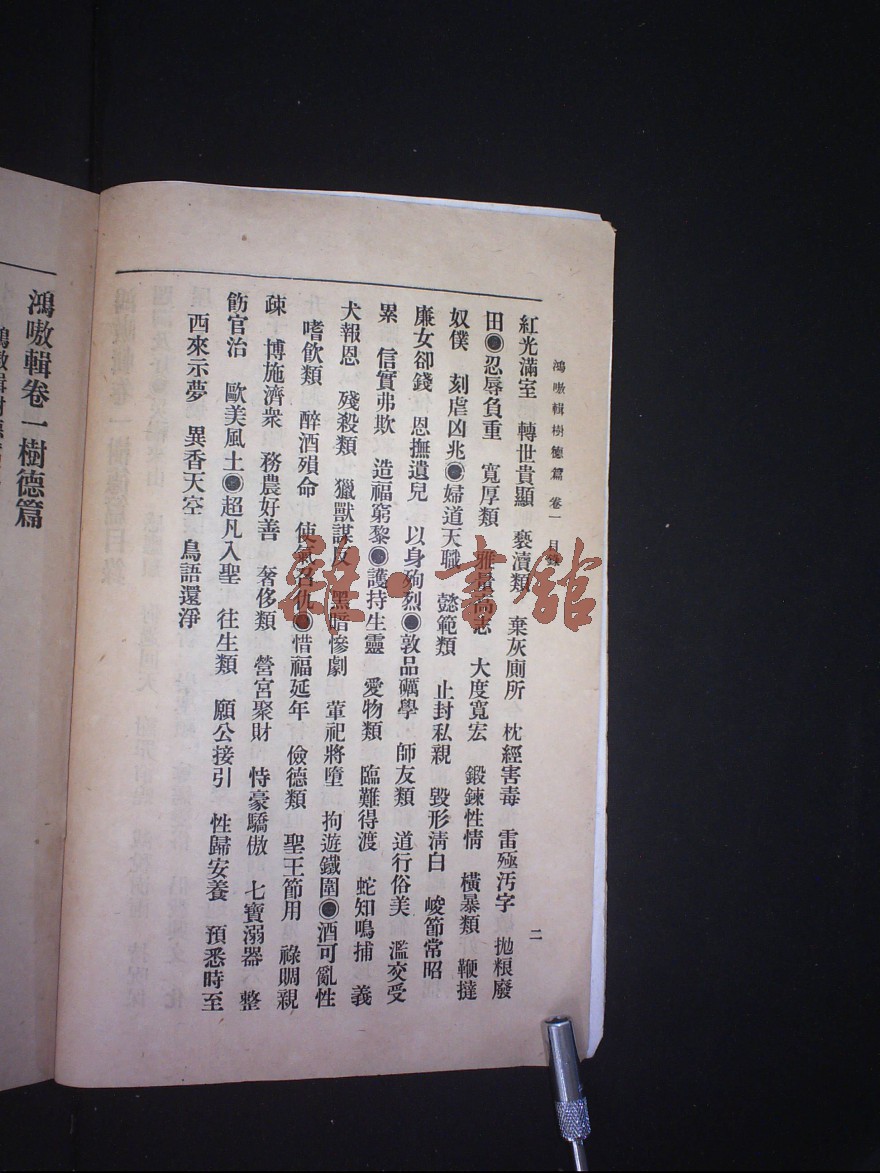 鴻嗷輯樹德篇 卷一 目錄 二
紅光滿室 轉世貴顯 褻瀆類 棄灰廁所 枕經害毒 雷殛汚字 拋粮廢
田●忍辱負重 寬厚類 雅量高志 大度寬宏 鍛鍊性情 橫暴類 鞭撻
奴僕 刻虐凶兆●婦道天職 懿範類 止封私親 毀形淸白 峻節常昭
廉女卻錢 恩撫遺兒 以身殉烈●敦品礪學 師友類 道行俗美 濫交受
累 信實弗欺 造福窮黎●護持生靈 愛物類 臨難得渡 蛇知鳴捕 義
犬報恩 殘殺類 獵獸謀反 黑暗慘劇 葷祀將墮 拘遊鐵圍●酒可亂性
嗜飮類 醉酒殞命 使氣召仇●惜福延年 儉德類 聖王節用 祿賙親
疎 博施濟衆 務農好善 奢侈類 營宮聚財 恃豪驕傲 七寶溺器 整
飭官治 歐美風土●超凡入聖 往生類 願公接引 性歸安養 預悉時至
西來示夢 異香天空 鳥語還淨
鴻嗷輯卷一樹德篇
雜·書館